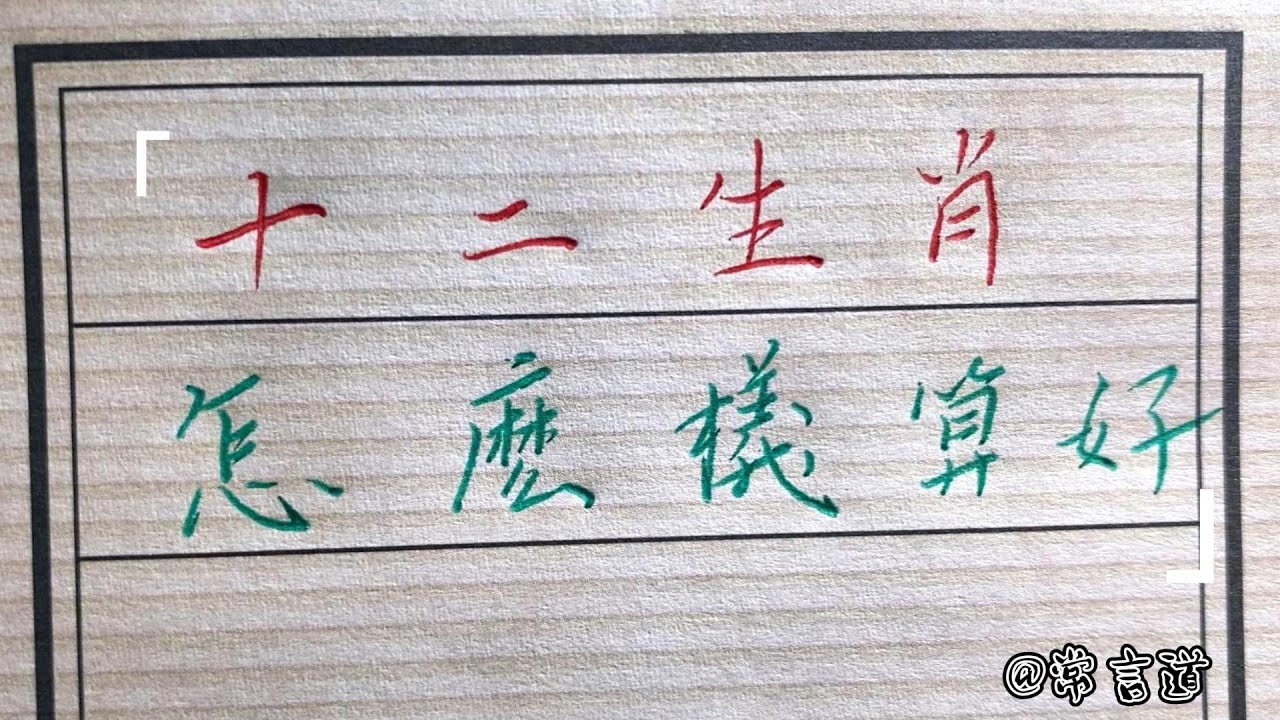 「十二生肖
怎麼樣算好」
@常言道